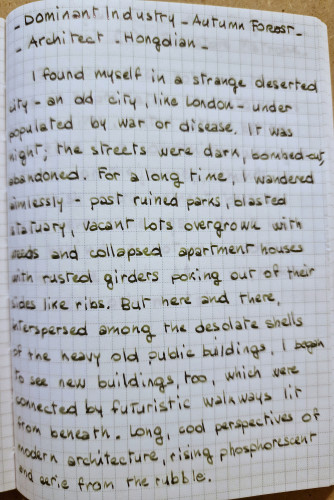 - Dominant Industry - Autumn Forest -
- Architect - Hongdian -
I found myself in a strange deserted
city - an old city, like London - under
populated by war or disease. It was
night; the streets were dark, bombed-out,
abandoned. For a long time, I wandered
aimlessly - past ruined parks, blasted
statuary, vacant lots overgrown with
weeds and collapsed apartment houses
with rusted girders poking out of their
sides like ribs. But here and there,
interspersed among the desolate shells
of the heavy old public buildings, I began
to see new buildings, too, which were
connected by futuristic walkways lit
from beneath. Long, cool perspectives of
modern architecture, rising phosphorescent
and eerie from the rubble.